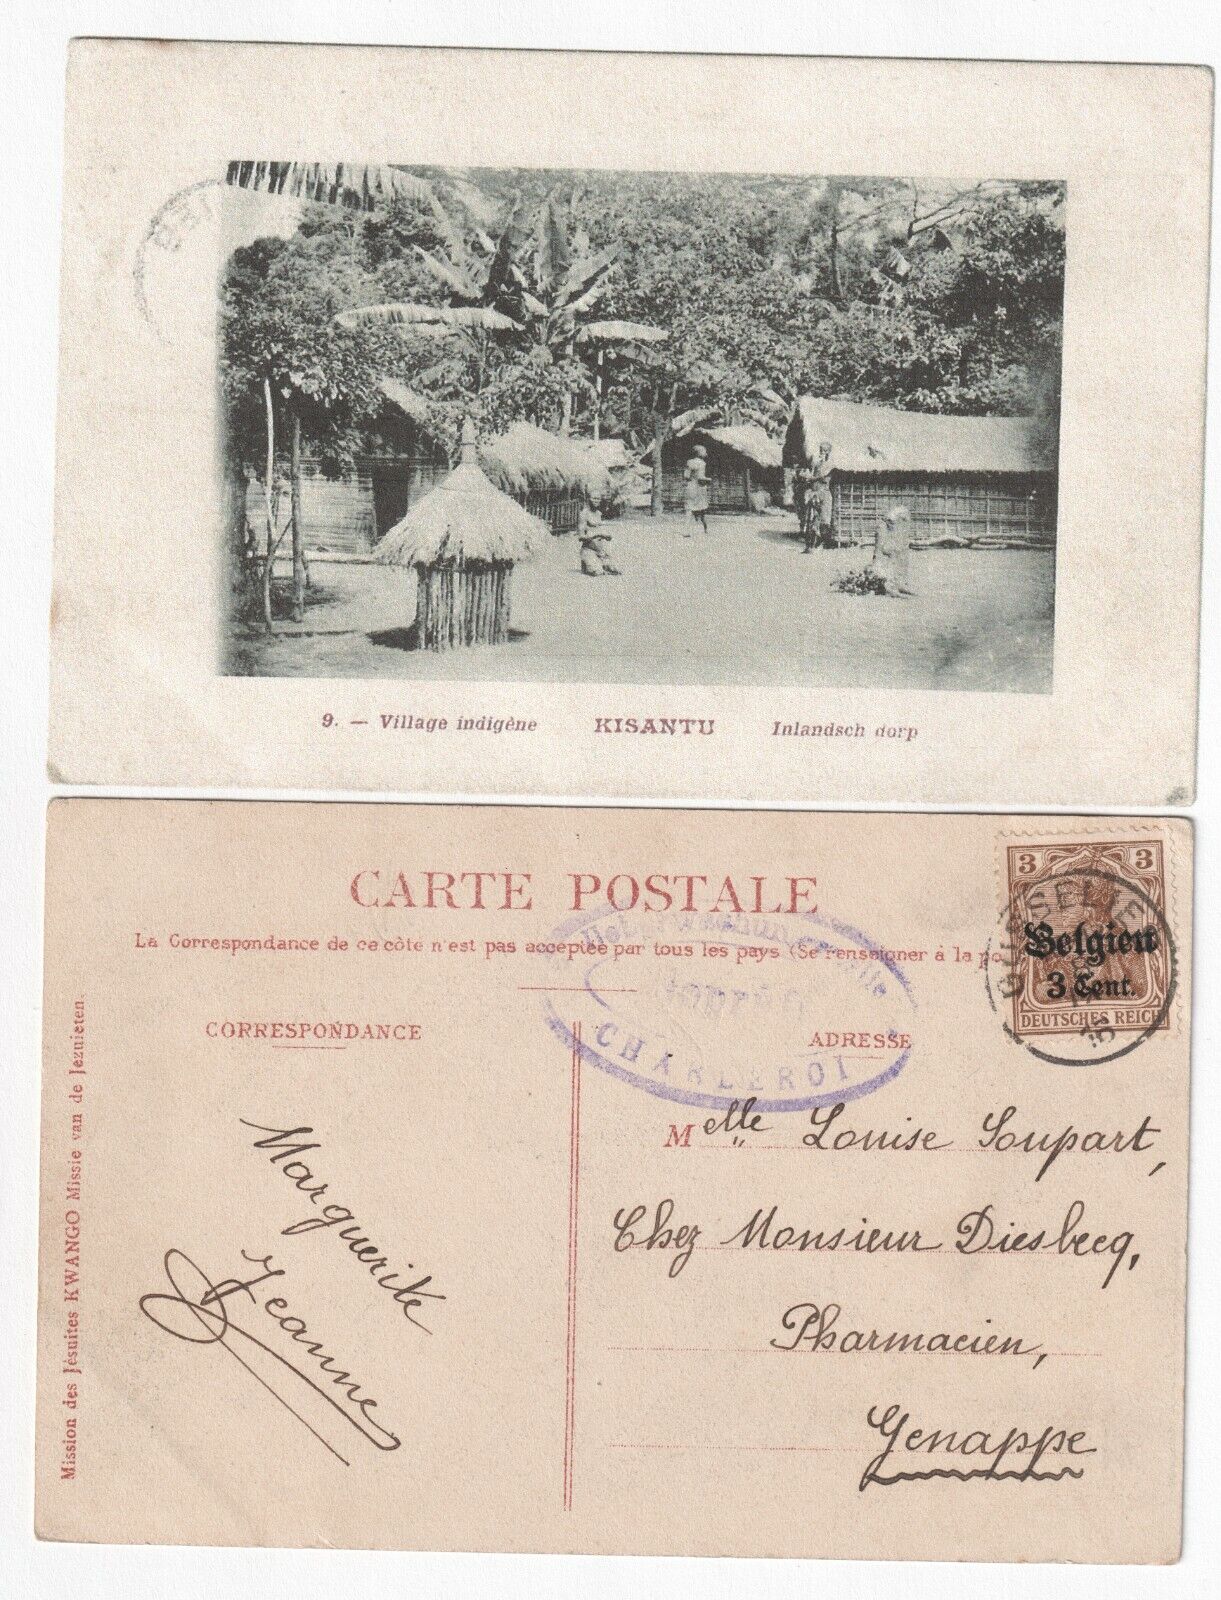 9. — Village indigène KISANTU Inlandsch dorp
CARTE POSTALE
La Correspondance de ce côte n'est pas acceptée par tous les pays (Se renseigner à la po
3 3
Belgien
3 Cent.
DEUTSCHES REICH
GOSSELIES
CHARLEROI
CORRESPONDANCE
ADRESSE
Mission des Jésuites KWANGO Missie van de Jezuieten.
Marguerite
Jeanne
Melle Louise Soupart,
Chez Monsieur Diesbecq,
Pharmacien,
Genappe